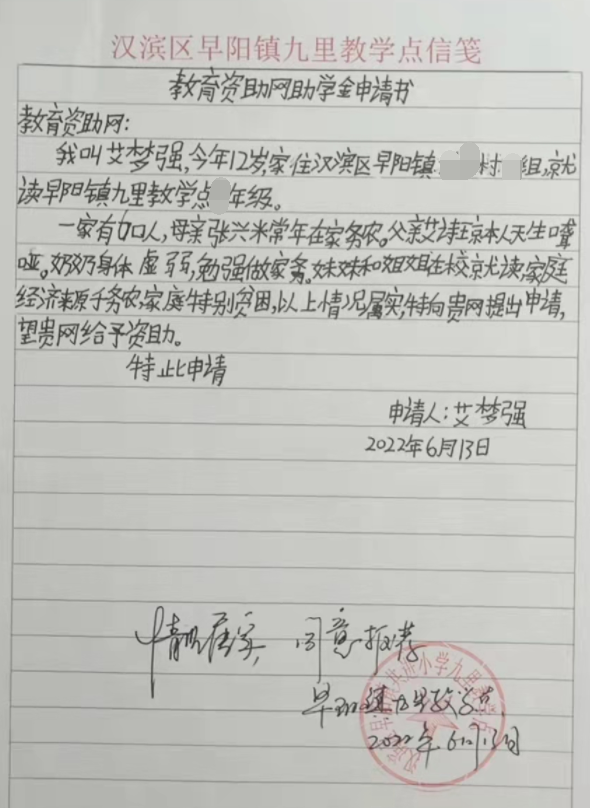 汉滨区早阳镇九里教学点信笺
教育资助网助学金申请书
教育资助网:
我叫艾梦强,今年12岁,家住汉滨区早阳镇 村 组,就
读早阳镇九里教学点 年级。
一家有如口人,母亲张兴米常年在家务农。父亲艾诗琼本人天生口聋
哑。奶奶身体虚弱,勉强做家务。妹妹和姐姐在校就读,家庭
经济来原于务农,家庭特别贫困,以上情况属实,特向贵网提出申请,
望贵网给予资助。
特此申请
申请人:艾梦强
2022年6月13日
情况属实, 同意推荐
早阳镇九里教学点
2022年6月13日
小学九里教学点